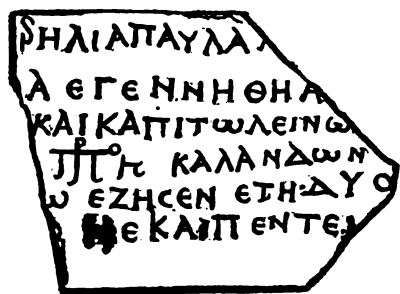 ΡΗΛΙΑΠΑΥΛΑ
Α ΕΓΕΝΝΗΘΗ Α
ΚΑΙΚΑΠΙΤΩΛΕΙΝΩ
ΚΑΛΑΝΔΩΝ
Ω ΕΖΗϹΕΝ ΕΤΗ·ΔΥΟ
Ε ΚΑΙΠΕΝΤΕ